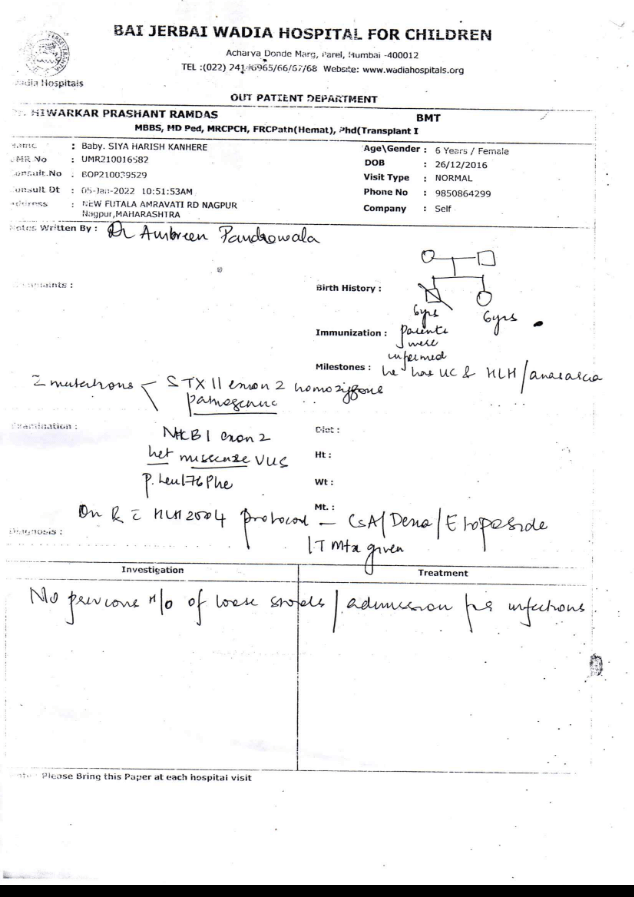 BAI JERBAI WADIA HOSPITAL FOR CHILDREN
Acharya Donde Marg, Parel, Mumbai -400012
TEL :(022) 24146965/66/67/68 Website: www.wadiahospitals.org
Wadia Hospitals
OUT PATIENT DEPARTMENT
HIWARKAR PRASHANT RAMDAS
BMT
MBBS, MD Ped, MRCPCH, FRCPath(Hemat), Phd(Transplant I
Name : Baby. SIYA HARISH KANHERE
Age\Gender : 6 Years / Female
UMR No : UMR210016582
DOB : 26/12/2016
Consult.No : BOP210039529
Visit Type : NORMAL
Consult Dt : 05-Jan-2022 10:51:53AM
Phone No : 9850864299
Address : NEW FUTALA AMRAVATI RD NAGPUR
Nagpur,MAHARASHTRA
Company : Self
Notes Written By : Dr Ambreen Pandrowala
Complaints :
Birth History :
6yrs
6yrs
Immunization : Parents
were
informed
Milestones : he has UC & HLH / anasarca
2 mutations STX 11 exon 2 homozygous
pathogenic
Examination :
Diet :
exon 2
Ht :
het missense VUS
Wt :
p. Leu176Phe
Mt. :
On R c HLH 2004 protocol - CsA / Dexa / Etoposide
Diagnosis :
IT Mtx given
Investigation
Treatment
No previous H/o of loose stools / admission for infections.
Note : Please Bring this Paper at each hospital visit